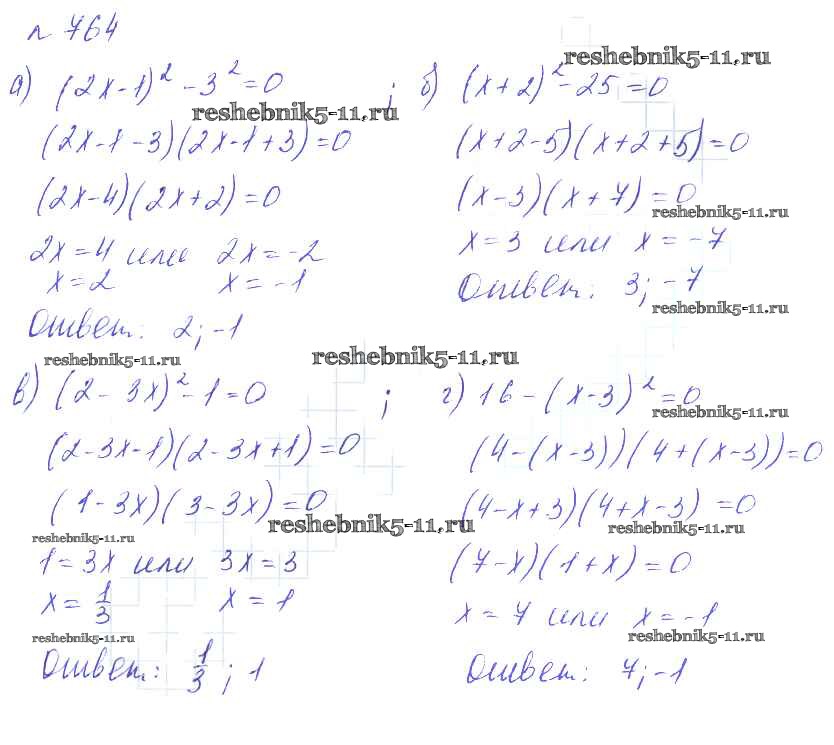 № 764
а) (2x-1)² - 3² = 0 ;
reshebnik5-11.ru
(2x-1-3)(2x-1+3)=0
(2x-4)(2x+2)=0
2x=4 или 2x=-2
x=2 x=-1
Ответ: 2; -1
reshebnik5-11.ru
reshebnik5-11.ru
б) (x+2)² - 25 = 0
(x+2-5)(x+2+5)=0
(x-3)(x+7)=0
reshebnik5-11.ru
x=3 или x=-7
Ответ: 3; -7
reshebnik5-11.ru
reshebnik5-11.ru
в) (2-3x)² - 1 = 0 ;
(2-3x-1)(2-3x+1)=0
(1-3x)(3-3x)=0
reshebnik5-11.ru
reshebnik5-11.ru
1=3x или 3x=3
x=1/3 x=1
reshebnik5-11.ru
Ответ: 1/3; 1
г) 16-(x-3)²=0
reshebnik5-11.ru
(4-(x-3))(4+(x-3))=0
(4-x+3)(4+x-3)=0
reshebnik5-11.ru
(7-x)(1+x)=0
x=7 или x=-1
reshebnik5-11.ru
Ответ: 7; -1